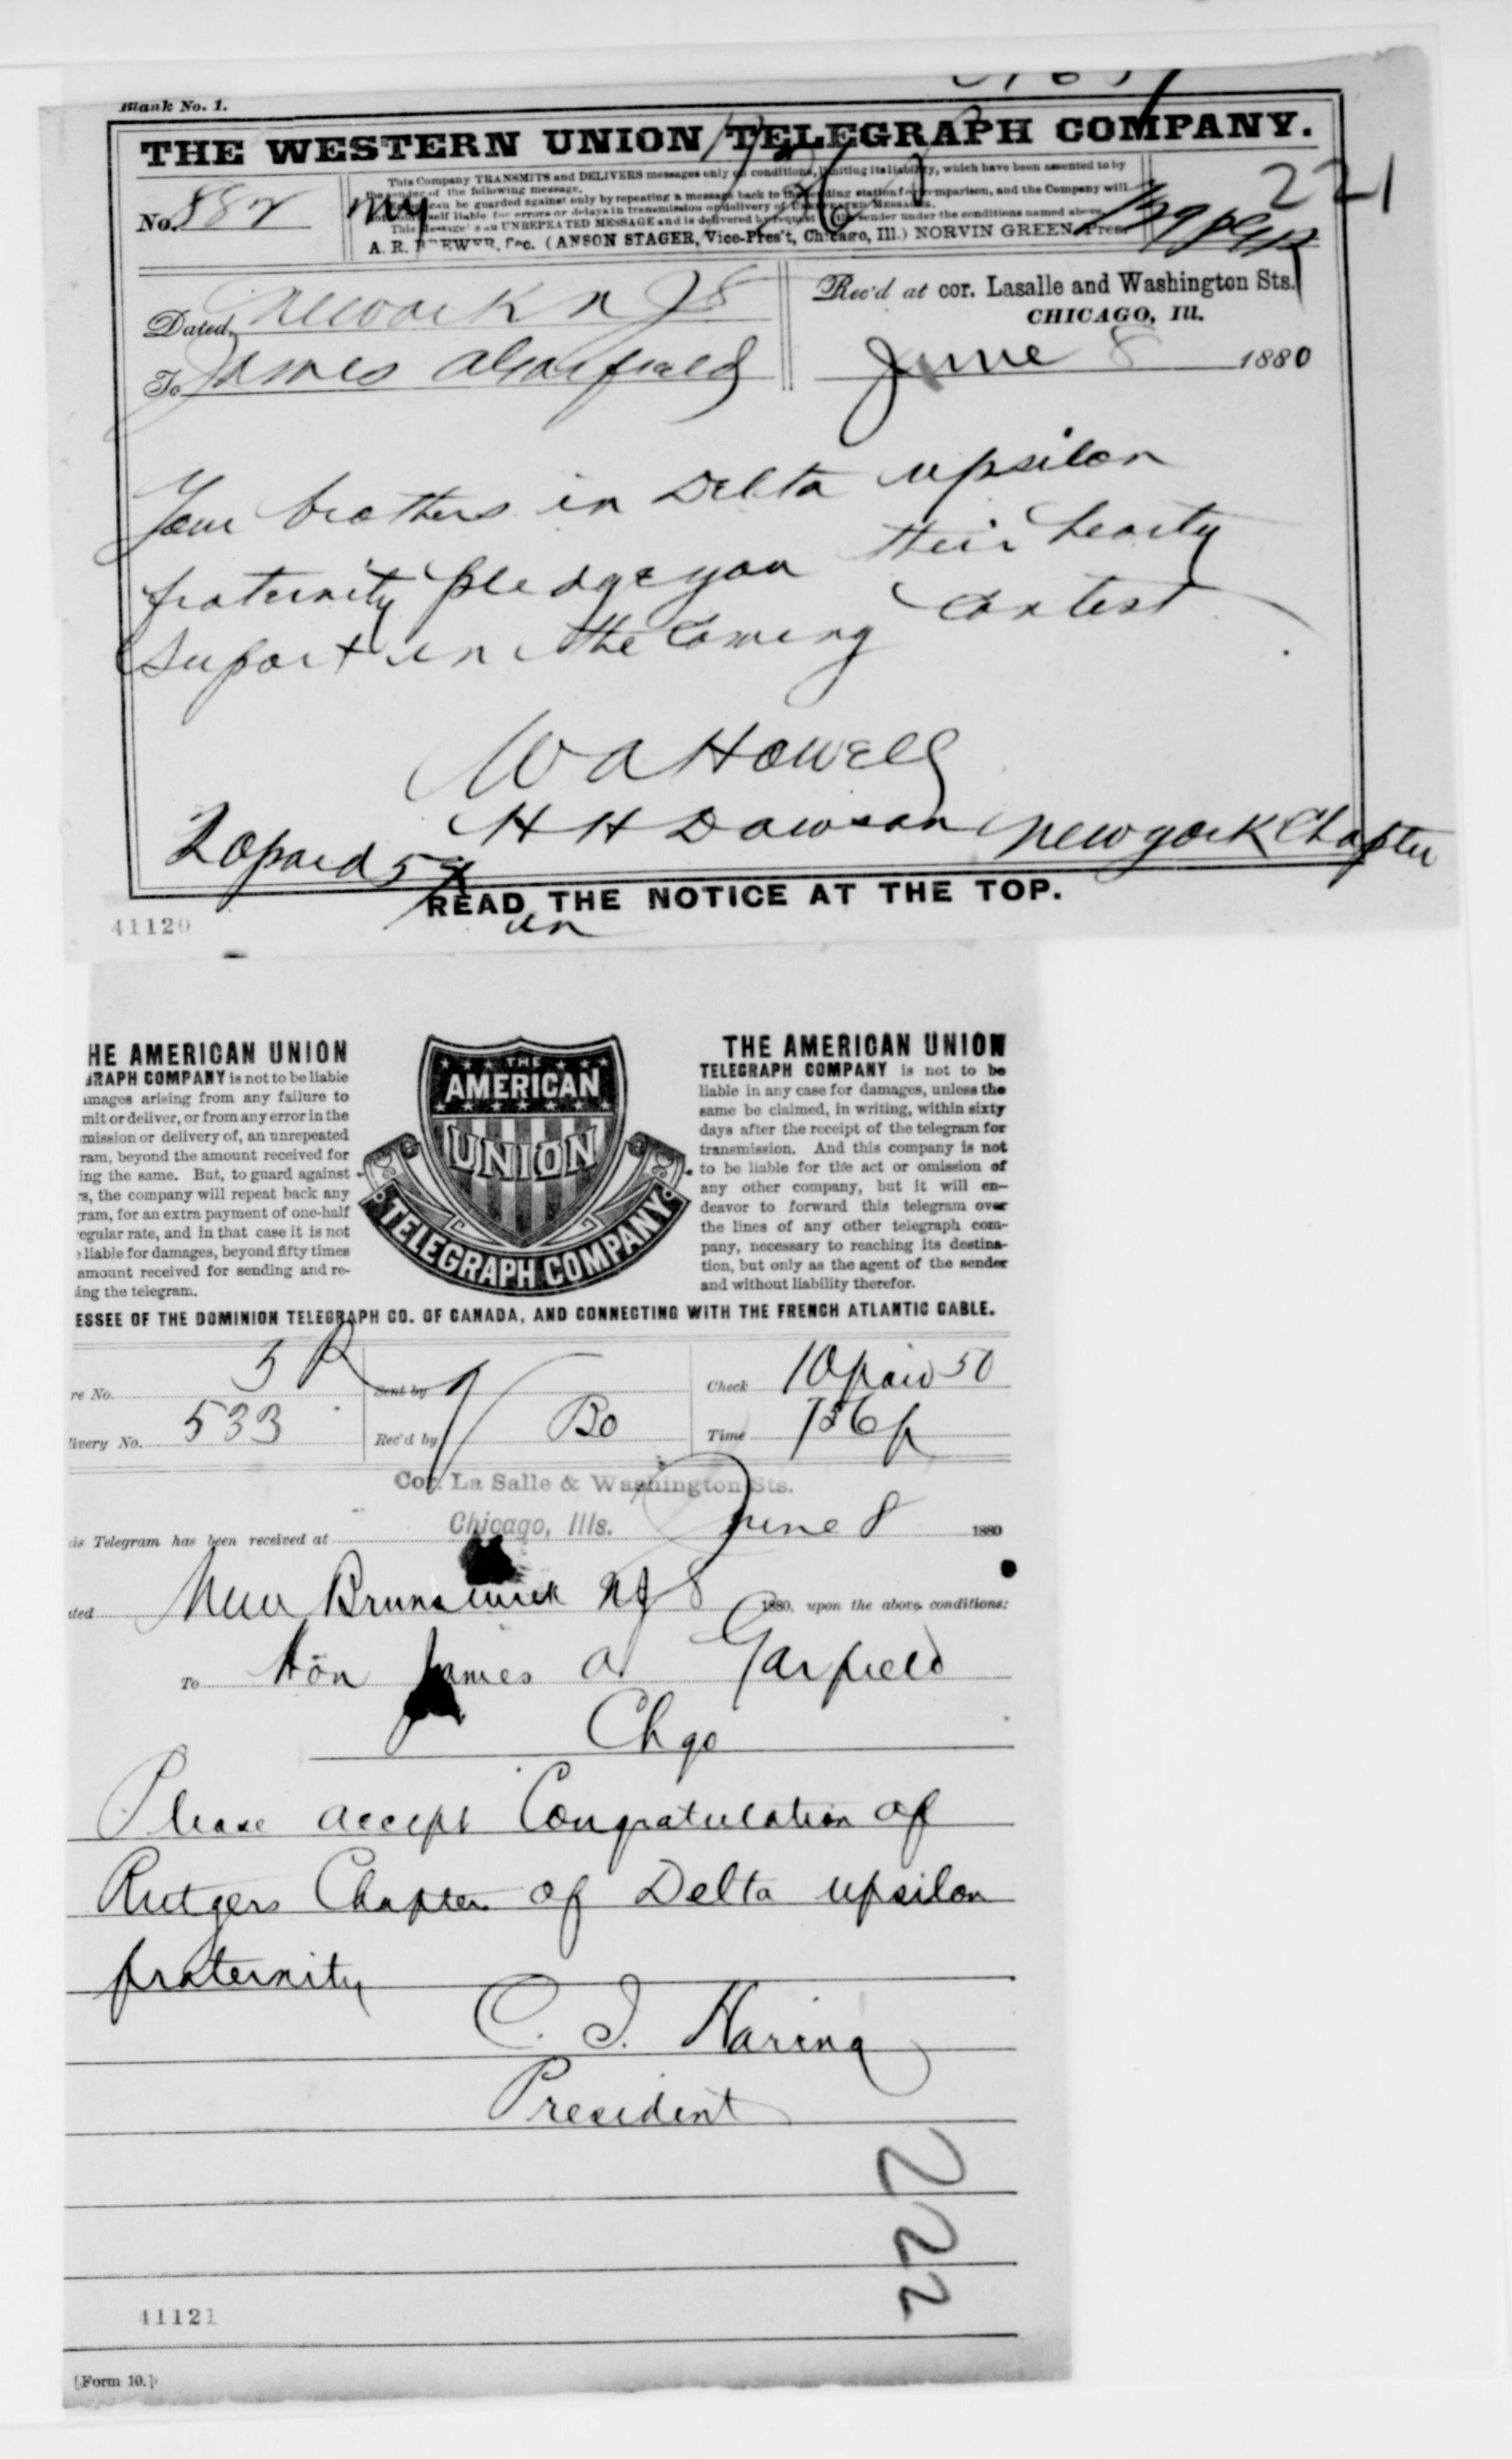 Blank No. 1.
THE WESTERN UNION TELEGRAPH COMPANY.
This Company TRANSMITS and DELIVERS messages only on conditions, limiting its liability, which have been assented to by
the sender of the following message.
can be guarded against only by repeating a message back to the sending station for comparison, and the Company will
self liable for errors or delays in transmission or delivery of UNREPEATED MESSAGES.
This message is an UNREPEATED MESSAGE and is delivered by request of the sender under the conditions named above.
A. R. BREWER, Sec. (ANSON STAGER, Vice-Pres't, Chicago, Ill.) NORVIN GREEN, Pres.
No. 882
221
Dated Newark N J 8
Rec'd at cor. Lasalle and Washington Sts.
CHICAGO, Ill.
To James A Garfield
June 8 1880
Your brothers in Delta upsilon
fraternity pledge you their hearty
suport in the coming contest
W A Howell
H H Dawson New york Chapter
20 paid
READ THE NOTICE AT THE TOP.
41120
HE AMERICAN UNION
GRAPH COMPANY is not to be liable
amages arising from any failure to
mit or deliver, or from any error in the
mission or delivery of, an unrepeated
ram, beyond the amount received for
ing the same. But, to guard against
s, the company will repeat back any
gram, for an extra payment of one-half
egular rate, and in that case it is not
liable for damages, beyond fifty times
amount received for sending and re-
ing the telegram.
THE AMERICAN UNION
TELEGRAPH COMPANY
THE AMERICAN UNION
TELEGRAPH COMPANY is not to be
liable in any case for damages, unless the
same be claimed, in writing, within sixty
days after the receipt of the telegram for
transmission. And this company is not
to be liable for the act or omission of
any other company, but it will en-
deavor to forward this telegram over
the lines of any other telegraph com-
pany, necessary to reaching its destina-
tion, but only as the agent of the sender
and without liability therefor.
ESSEE OF THE DOMINION TELEGRAPH CO. OF CANADA, AND CONNECTING WITH THE FRENCH ATLANTIC CABLE.
re No. 5 R Sent by Check 10 paid 50
livery No. 533 Rec'd by Bo Time
Cor. La Salle & Washington Sts.
is Telegram has been received at Chicago, Ills. June 8 1880
ted New Brunswick NJ 8 1880, upon the above conditions:
To Hon James A Garfield
Chgo
Please accept Congratulation of
Rutgers Chapter of Delta upsilon
fraternity
C. I. Haring
President
222
41121
[Form 10.]